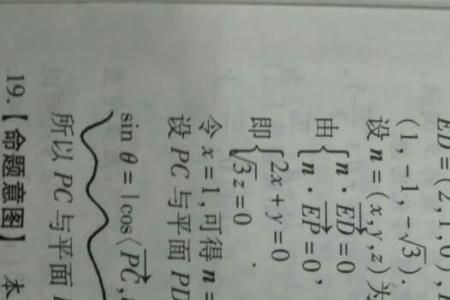 ED=(2,1,0),
(1,-1,-√3).
设n=(x,y,z)为
由{n·ED=0
n·EP=0,
即{2x+y=0
√3z=0
令x=1,可得n=
设PC与平面PD
sin θ=|cos⟨PC,
所以PC与平面
19.【命题意图】 本